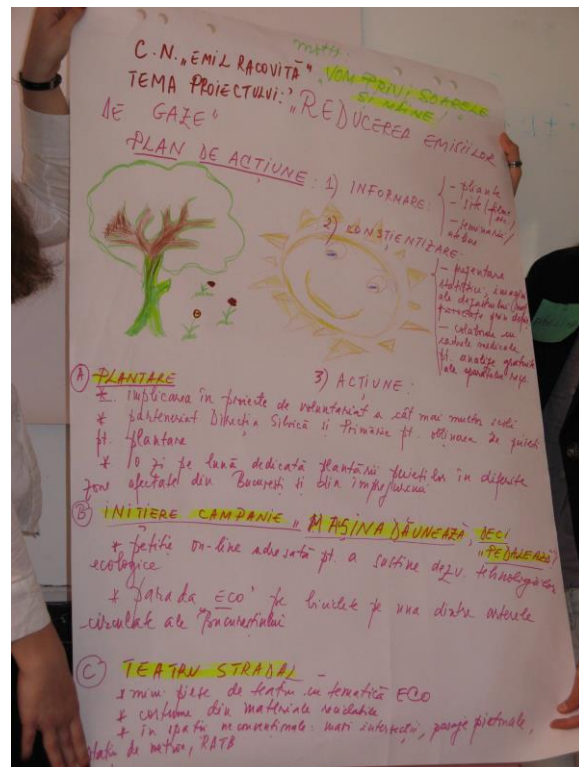 motto:
C.N. „EMIL RACOVIȚĂ" „VOM PRIVI SOARELE
ȘI MÂINE!"
TEMA PROIECTULUI: „REDUCEREA EMISIILOR
DE GAZE"
PLAN DE ACȚIUNE: 1) INFORMARE:
- pliante
- site (filme
- seminarii/
2) CONȘTIENTIZARE:
- prezentare
statistici, imagini
ale dezastrului
proiectate prin
- colaborare cu
cadrele medicale
pt. analize gratuite
ale aparatului resp.
3) ACȚIUNE:
A PLANTARE
* implicarea în proiecte de voluntariat a cât mai multor școli
* parteneriat Direcția Silvică și Primărie pt. obținerea de puieți
pt. plantare
* o zi pe lună dedicată plantării puieților în diferite
zone afectate din București și din împrejurimi
B INIȚIERE CAMPANIE „MAȘINA DĂUNEAZĂ, DECI
PEDALEAZĂ!"
* petiție on-line adresată pt. a susține dezv. tehnologiilor
ecologice
* parada ECO pe biciclete pe una dintre arterele
circulate ale Bucureștiului
C TEATRU STRADAL
* mini piese de teatru cu tematică ECO
* costume din materiale reciclabile
* în spații neconvenționale: mari intersecții, pasaje pietonale,
stații de metrou, RATB